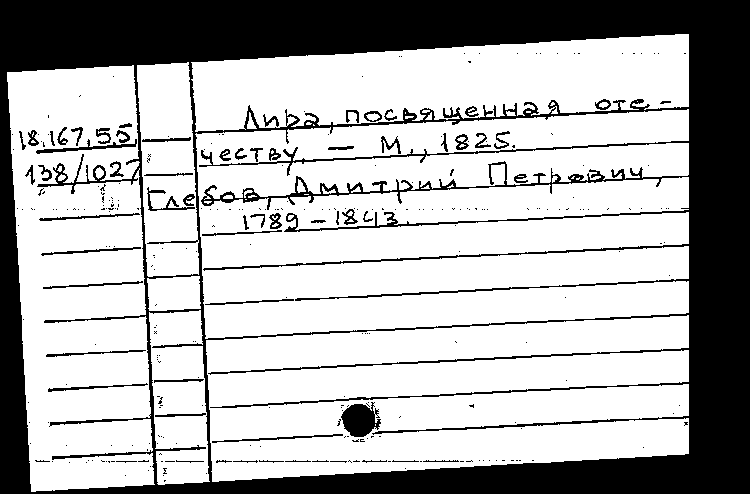 Лира, посвященная оте-
18.167.5.5
честву. — М., 1825.
138/1027
Глебов, Дмитрий Петрович,
1789 – 1843.